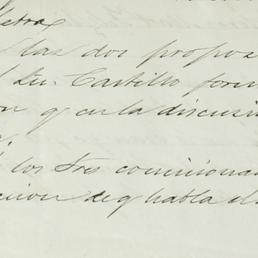 letra
las dos propos
Lu. Castillo form
on q en la discusi
los tres comisiona
cion de q habla el